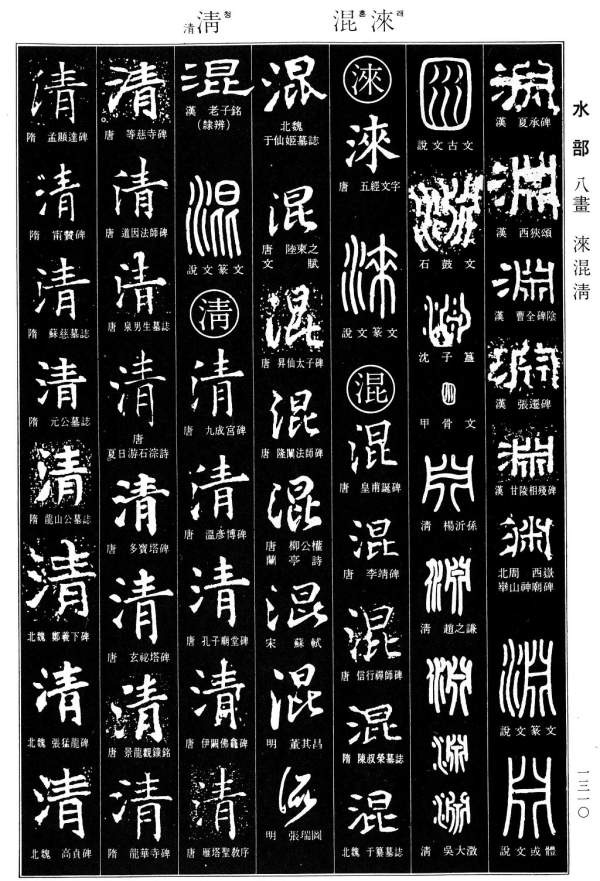 淸 청 清
混 혼 淶 래
水部 八畫 淶混淸
一三一〇
淵
漢 夏承碑
淵
漢 西狹頌
淵
漢 曹全碑陰
淵
漢 張遷碑
淵
漢 甘陵相殘碑
北周 西嶽
華山神廟碑
淵
說文篆文
說文或體
說文古文
淵
石鼓文
沈子簋
甲骨文
清 楊沂孫
淵
清 趙之謙
淵
淵
淵
清 吳大澂
淶
淶
唐 五經文字
淶
說文篆文
混
混
唐 皇甫誕碑
混
唐 李靖碑
混
唐 信行禪師碑
混
隋 陳叔榮墓誌
混
北魏 于纂墓誌
混
北魏
于仙姬墓誌
混
唐 陸柬之
文賦
混
唐 昇仙太子碑
混
唐 隆闡法師碑
混
唐 柳公權
蘭亭詩
混
宋 蘇軾
混
明 董其昌
混
明 張瑞圖
混
漢 老子銘
(隸辨)
混
說文篆文
淸
清
唐 九成宮碑
清
唐 溫彥博碑
清
唐 孔子廟堂碑
清
唐 伊闕佛龕碑
清
唐 雁塔聖教序
清
唐 等慈寺碑
清
唐 道因法師碑
清
唐 泉男生墓誌
清
唐
夏日游石淙詩
清
唐 多寶塔碑
清
唐 玄祕塔碑
清
唐 景龍觀鐘銘
清
隋 龍華寺碑
清
隋 孟顯達碑
清
隋 甯贊碑
清
隋 蘇慈墓誌
清
隋 元公墓誌
清
隋 龍山公墓誌
清
北魏 鄭羲下碑
清
北魏 張猛龍碑
清
北魏 高貞碑